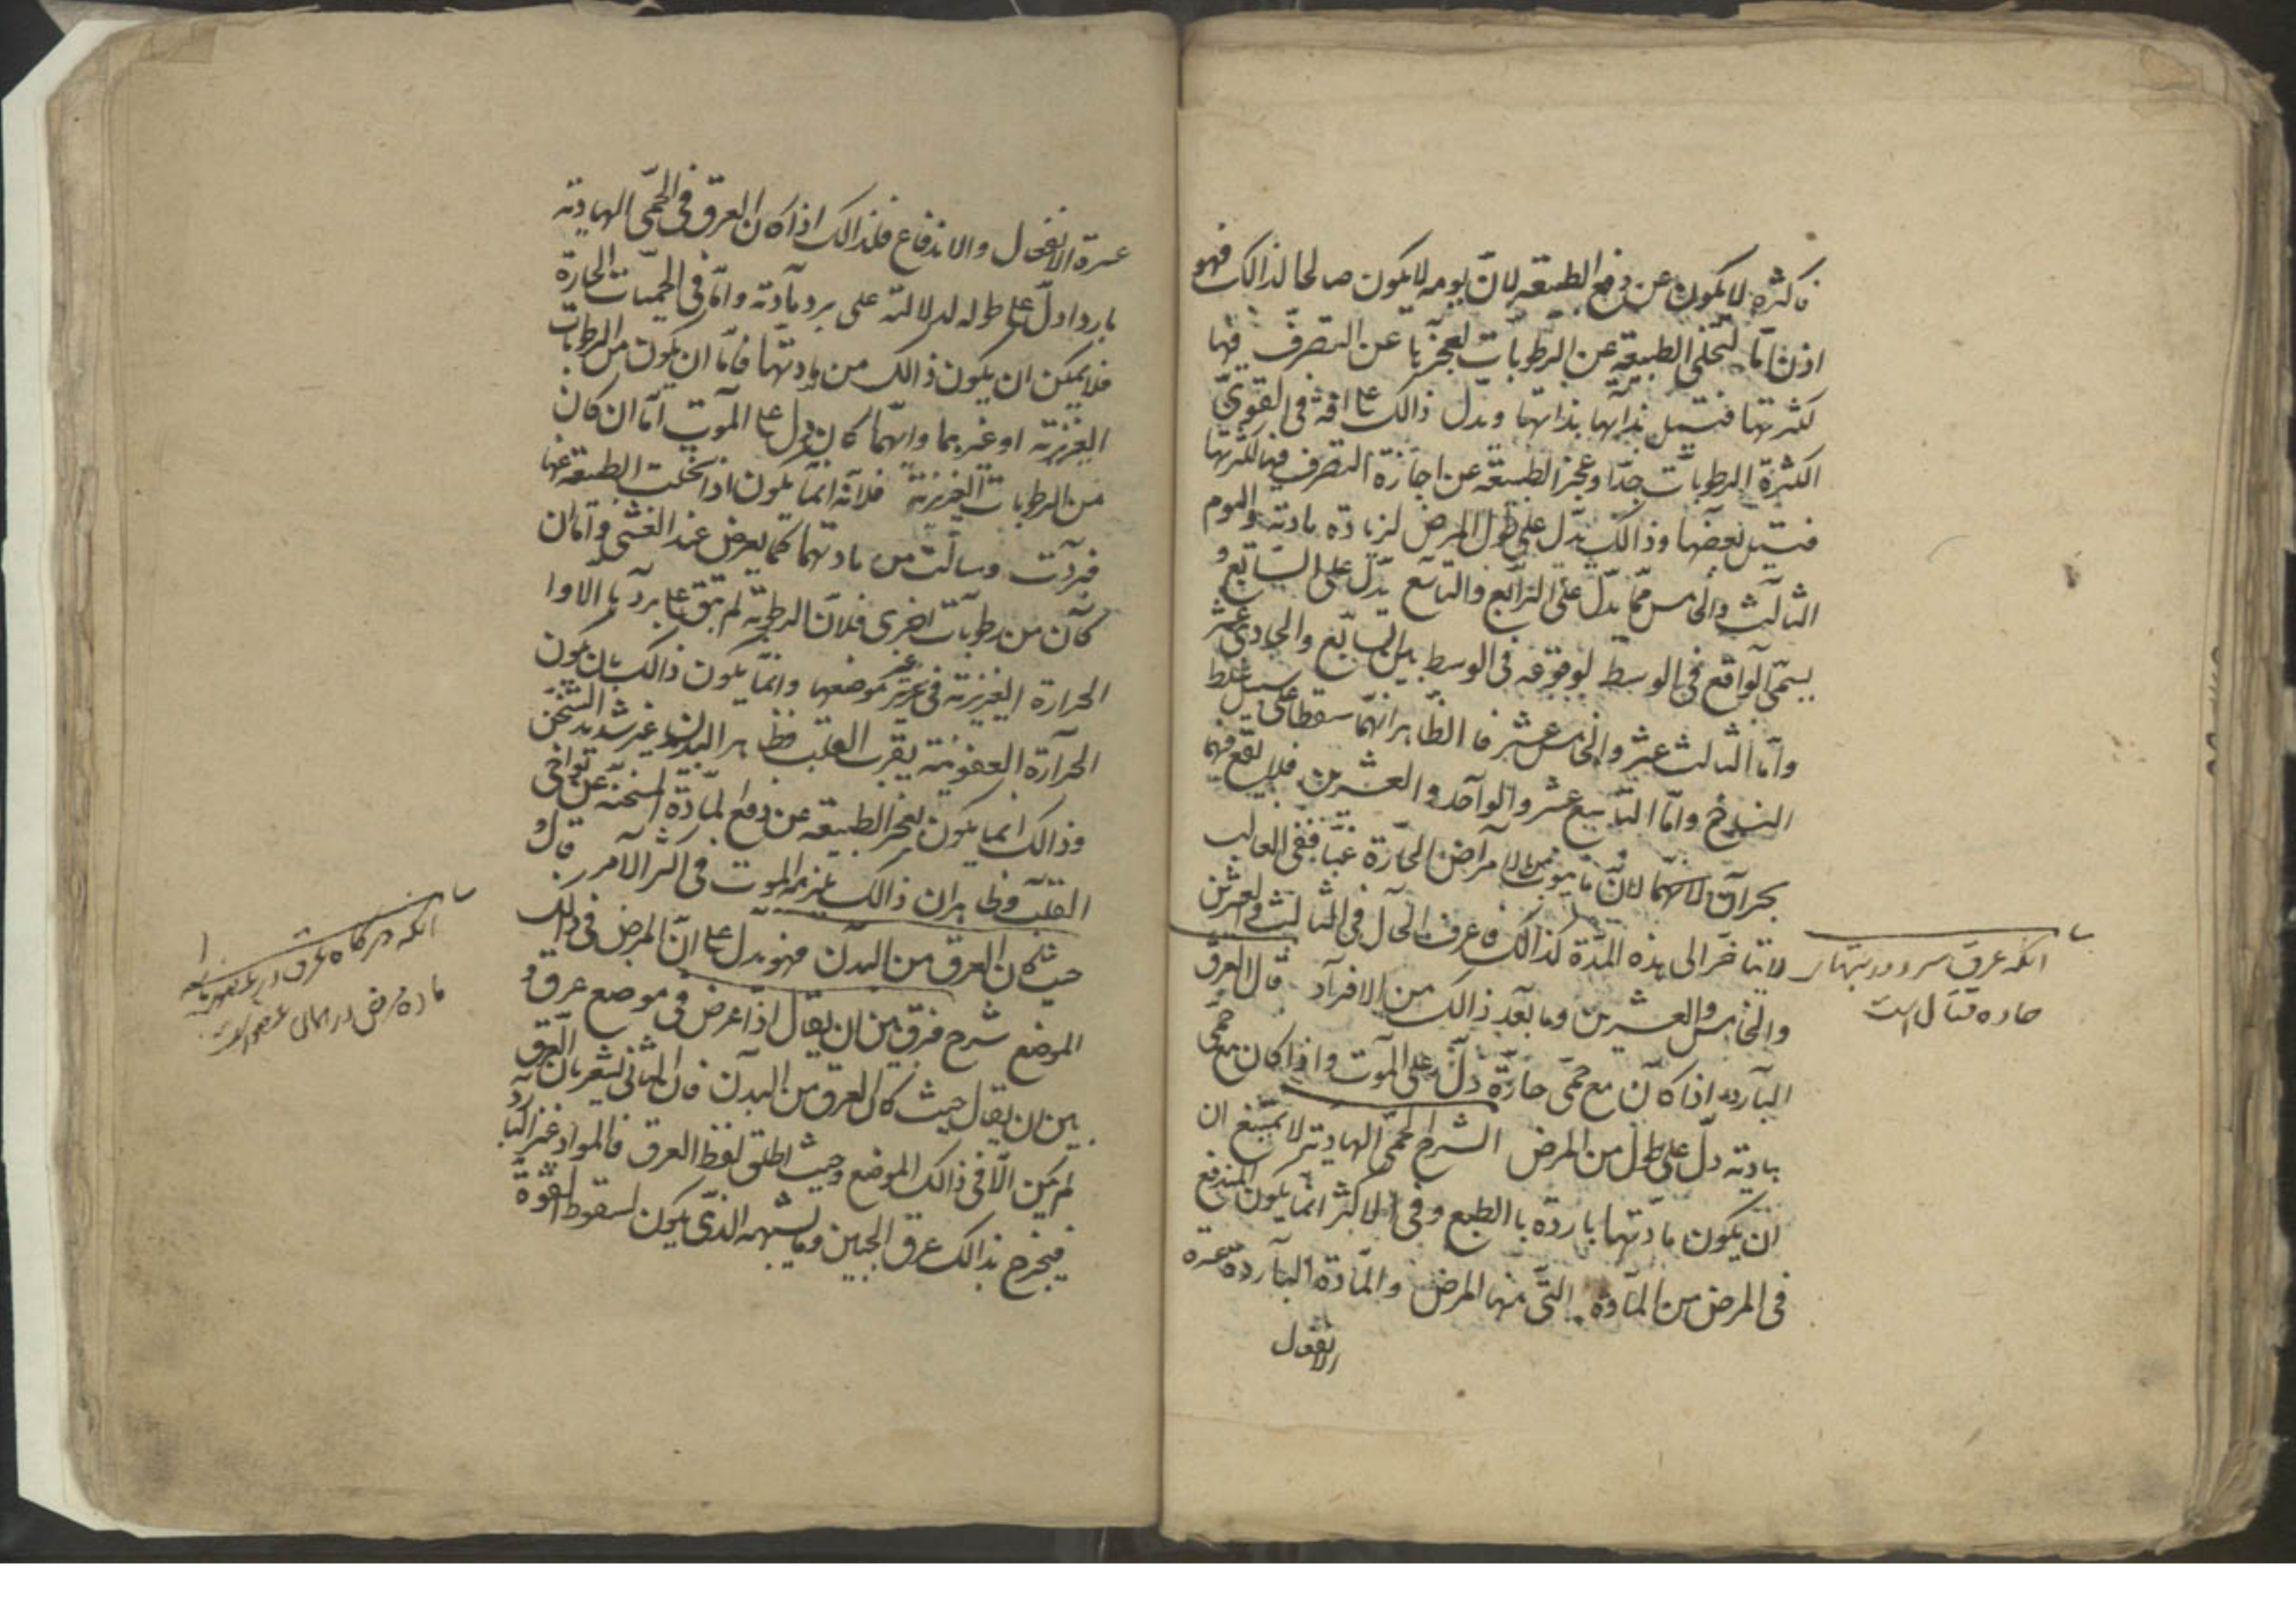 فاكثره لا يكون عن دفع الطبيعة لان يومه لا يكون صالحا لذالك فهو
اذن اما لتخلى الطبيعة عن الرطوبات لعجزها عن التصرف فيها
لكثرتها فتسيل بذاتها ويدل ذالك على افة فى القوى
الكثرة الرطوبات جدا وعجز الطبيعة عن اجازة التصرف فيها لكثرتها
فتسيل بعضها وذالك يدل على طول المرض لزيادة مادته واليوم
الثالث والخامس مما يدل على الرابع والتاسع يدل على السابع و
يسمى الواقع فى الوسط لوقوعه فى الوسط بين السابع والحادى عشر
واما الثالث عشر والخامس عشر فالظاهر انهما سقطا على سبيل غلط
النساخ واما التاسع عشر والواحد والعشرين فلا يقع فيهما
بحران لا سيما لان ما يتوب من الامراض الحارة غبا ففى الغالب
لا يتأخر الى هذه المدة كذالك فاعرف الحال فى الثالث والعشرين
والخامس والعشرين وما بعد ذالك من الافراد قال العرق
البارد اذا كان مع حمى حارة دل على الموت واذا كان مع حمى
هادية دل على طول من المرض الشرح الحمى الهادية لا يمتنع ان
ان يكون مادتها باردة بالطبع وفى الاكثر انما يكون المندفع
فى المرض من المادة التى منها المرض والمادة الباردة عسرة
الانفعال
انكه عرق سرد در تبهاى
حاده قتال است
عسرة الانفعال والاندفاع فلذالك اذا كان العرق فى الحمى الهادية
باردا دل على طوله لدلالته على برد مادته واما فى الحميات الحارة
فلا يمكن ان يكون ذالك من مادتها فاما ان يكون من الرطوبات
الغريزية او غيرهما وايهما كان يدل على الموت اما ان كان
من الرطوبات الغريزية فلانه انما يكون اذا تخلت الطبيعة عنها
فبردت وسالت من مادتهما كما يعرض عند الغشى واما ان
كان من رطوبات اخرى فلان الرطوبة لم تبق على بردها الا وا
الحرارة الغريزية فى غير موضعها وانما يكون ذالك بان يكون
الحرارة العفونية بقرب القلب فظاهر البدن غير شديد التسخن
وذالك انما يكون لعجز الطبيعة عن دفع المادة المسخنة عن نواحى
القلب وظاهر ان ذالك يلزمه الموت فى اكثر الامر قال و
حيث كان العرق من البدن فهو يدل على ان المرض فى ذلك
الموضع شرح فرق بين ان يقال اذا عرض فى موضع عرق و
بين ان يقال حيث كان العرق من البدن فان الثانى يشعر بان العرق
لم يكن الا فى ذالك الموضع وحيث اطلق لفظ العرق فالمواد غير البارد
فيخرج بذالك عرق الجبين وما يشبهه الذى يكون لسقوط القوة
انكه هركاه عرق در عضو
ماده مرض در همان عضو است